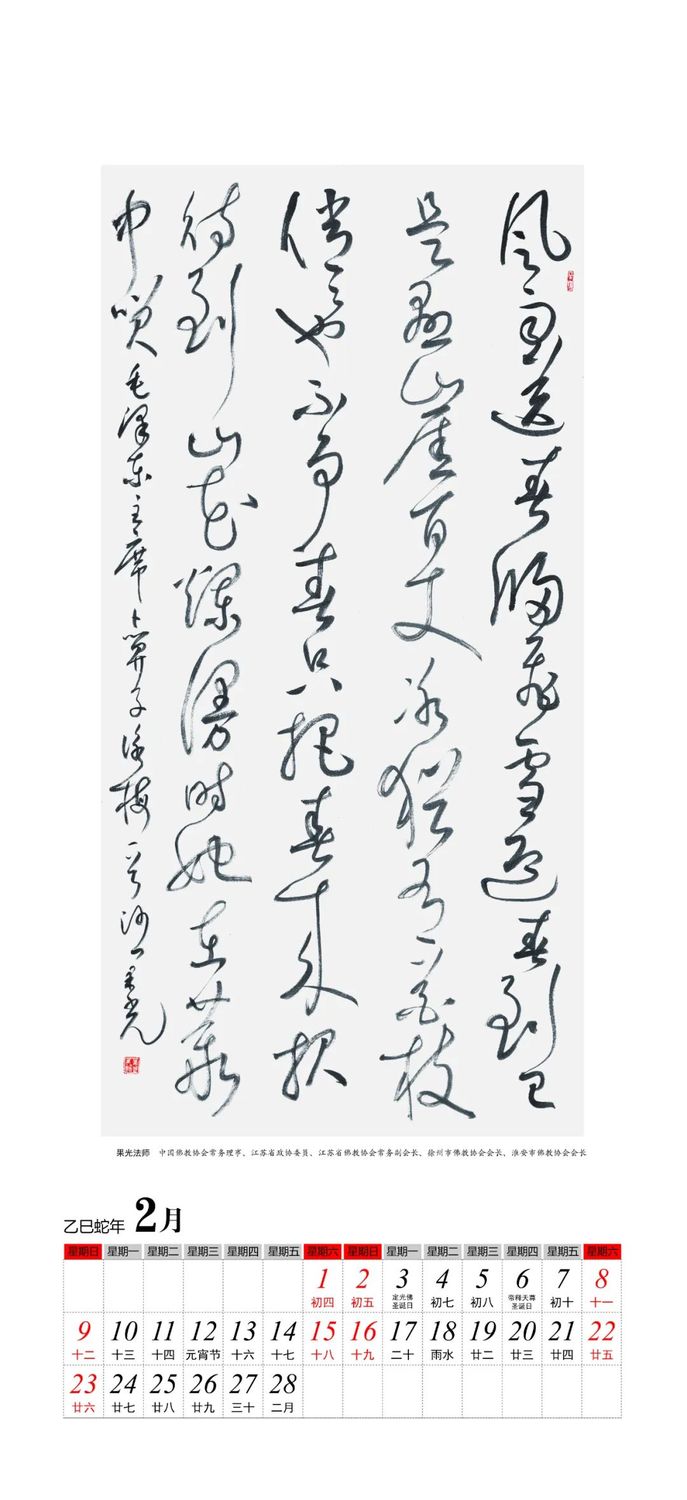 风雨送春归飞雪迎春到已
是悬崖百丈冰犹有花枝
俏〻也不争春只把春来报
待到山花烂漫时她在叢
中笑 毛泽东主席卜算子咏梅一首 沙门果光
果光法师 中国佛教协会常务理事、江苏省政协委员、江苏省佛教协会常务副会长、徐州市佛教协会会长、淮安市佛教协会会长
乙巳蛇年 2月
星期日 星期一 星期二 星期三 星期四 星期五 星期六 星期日 星期一 星期二 星期三 星期四 星期五 星期六
1 2 3 4 5 6 7 8
初四 初五 定光佛圣诞日 初七 初八 帝释天尊圣诞日 初十 十一
9 10 11 12 13 14 15 16 17 18 19 20 21 22
十二 十三 十四 元宵节 十六 十七 十八 十九 二十 雨水 廿二 廿三 廿四 廿五
23 24 25 26 27 28
廿六 廿七 廿八 廿九 三十 二月